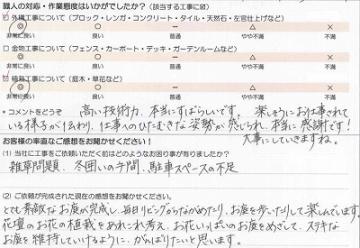 職人の対応・作業態度はいかがでしたか?（該当する工事に☑）
☑外構工事について（ブロック・レンガ・コンクリート・タイル・天然石・左官仕上げなど）
◎ ○ － △ ×
非常に良い 良い 普通 やや不満 不満
□金物工事について（フェンス・カーポート・デッキ・ガーデンルームなど）
◎ ○ － △ ×
非常に良い 良い 普通 やや不満 不満
☑植栽工事について（庭木・草花など）
◎ ○ － △ ×
非常に良い 良い 普通 やや不満 不満
・コメントをどうぞ 高い技術力、本当にすばらしいです。楽しそうにお仕事されて
いる様子が伝わり、仕事へのひたむきな姿勢が感じられ、本当に感謝です!
大事にしていきますね。
お客様の率直なご感想をお聞かせください!
(1) 当社に工事をご依頼いただく前はどのようなお困り事が有りましたか?
雑草問題、冬囲いの手間、駐車スペースの不足
(2) ご依頼が完成された現在の感想をお聞かせください
とても素敵なお庭が完成し、毎日リビングからながめたり、お庭を歩いたりして楽しんでいます。
花壇のお花の植栽をあれこれ考え、お花いっぱいのお庭をめざして、ステキな
お庭を維持していけるように、がんばりたいと思います。